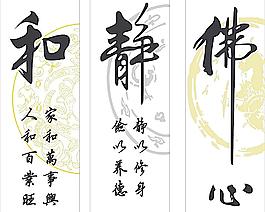 和
家和萬事興
人和百業旺
靜
靜以修身
儉以养德
佛
心